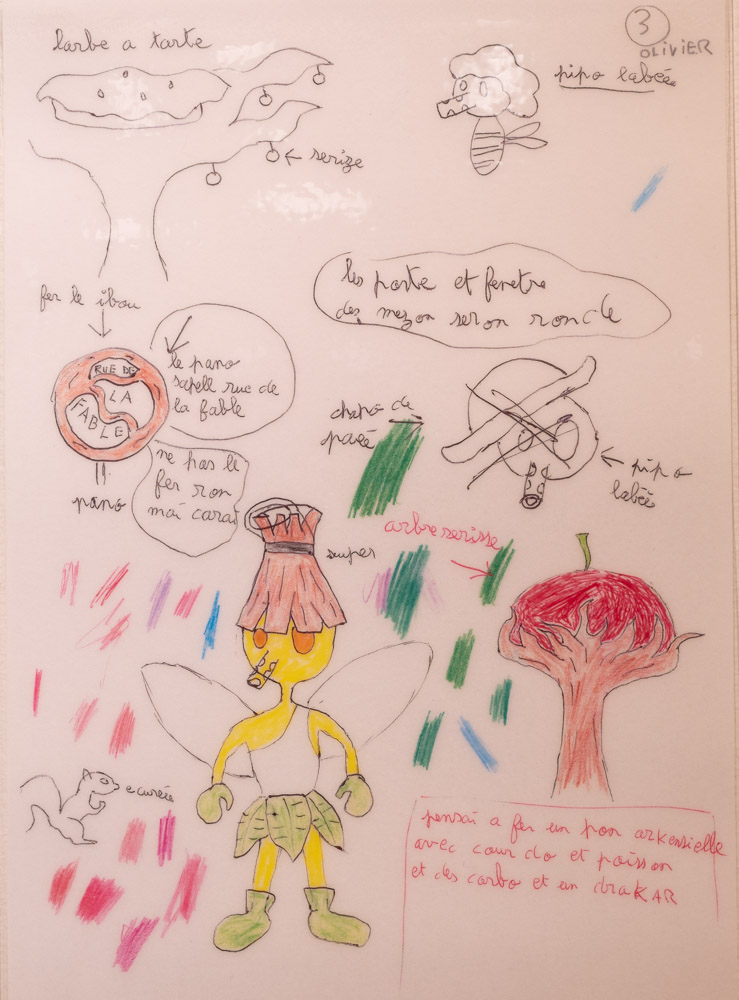 3
OLIVIER
larbe a tarte
pipo labée
serize
fer le ibou
les porte et fenetre
des mezon seron roncle
RUE DE
LA
FABLE
le pano
sapell rue de
la fable
chapo de
pipo
labée
ne pas le
fer ron
mai carai
pano
souper
arbre serisse
ecurée
pensai a fer un pon arkensielle
avec cour do et poisson
et des corbo et un draKAR